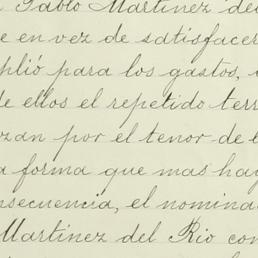 Pablo Martinez del
e en vez de satisfacer
plió para los gastos,
de ellos el repetido terr
zan por el tenor de l
a forma que mas hay
nsecuencia, el nomina
Martinez del Rio con